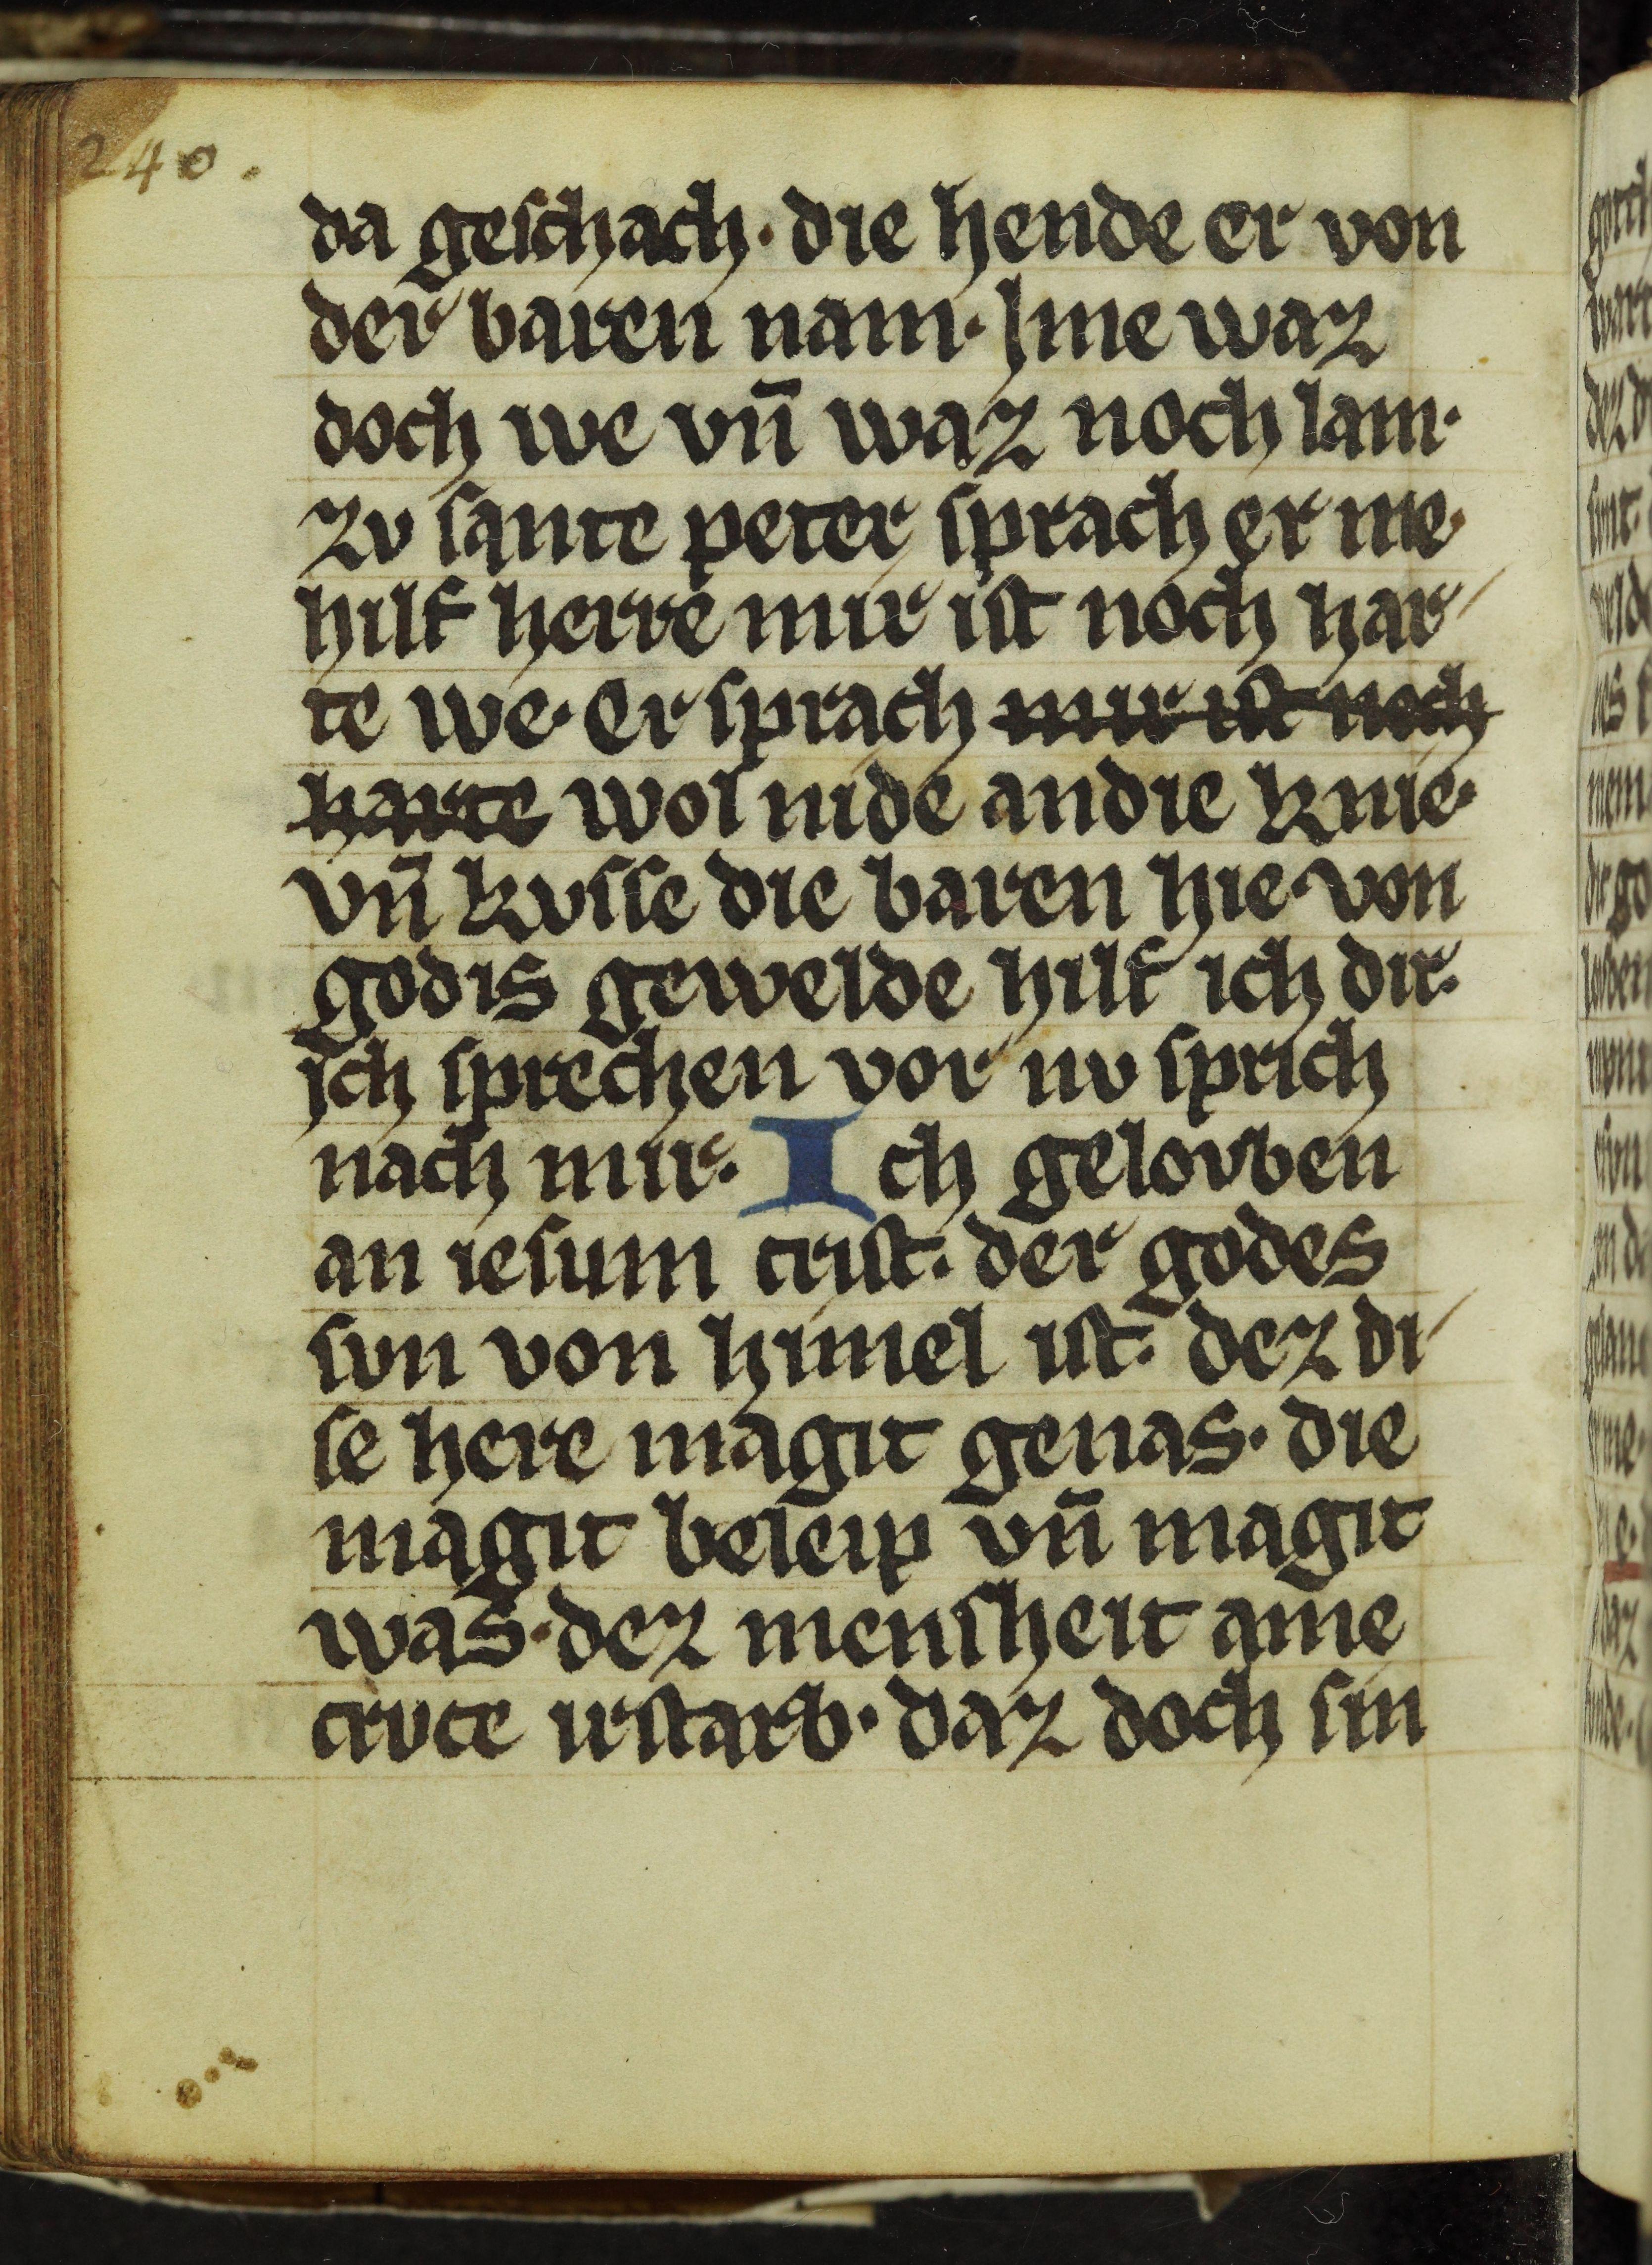 240.
da geschach· die hende er von
der baren nam· Ime waz
doch we vn̄ waz noch lam·
zv sante peter sprach er me·
hilf herre mir ist noch har
te we· Er sprach mir ist noch
harte wol nide an die knie·
vn̄ kvsse die baren hie· von
godis gewelde hilf ich dir·
ich sprechen vor nv sprich
nach mir· Ich gelovben
an iesum crist· der godes
svn von himel ist· dez di
se here magit genas· die
magit beleip vn̄ magit
was· dez mensheit ame
crvce irstarb· daz doch sin